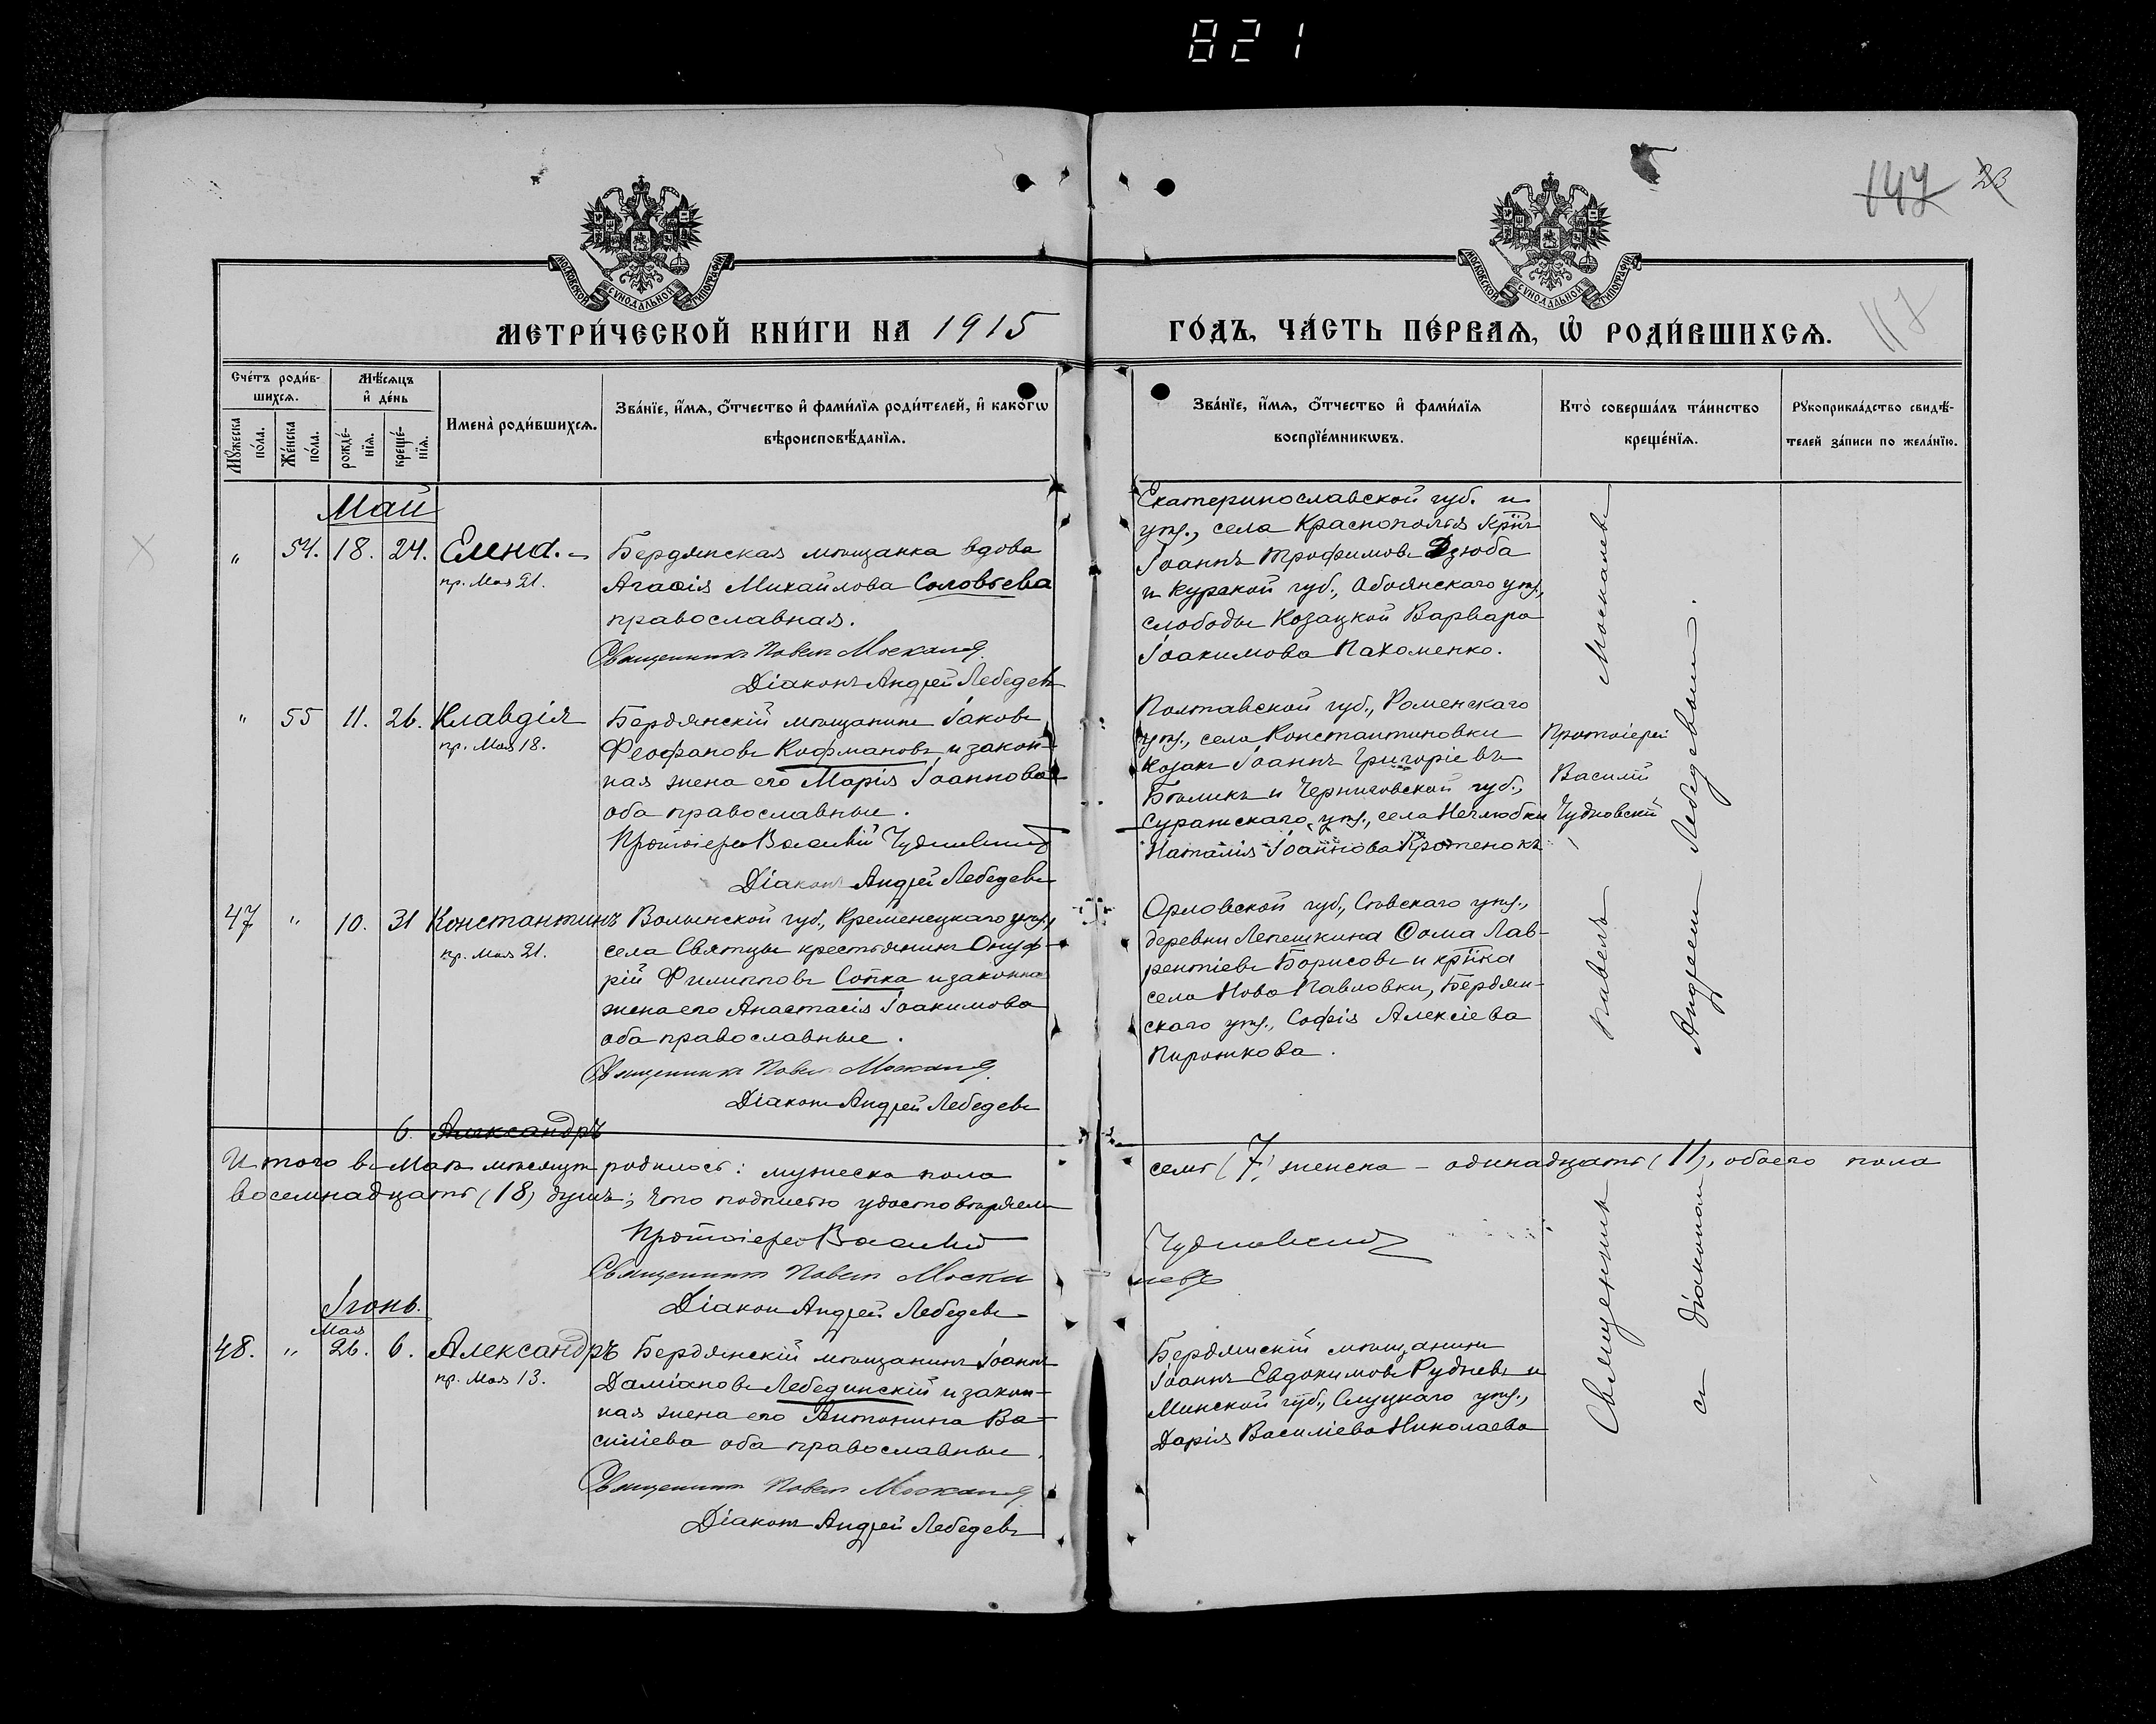 821
147 28
117
МОСКОВСКОЙ СУНОДАЛЬНОЙ ТИПОГРАФІИ
МОСКОВСКОЙ СУНОДАЛЬНОЙ ТИПОГРАФІИ
МЕТРИ́ЧЕСКОЙ КНИ́ГИ НА 1915
ГО́ДЪ, ЧА́СТЬ ПЕ́РВАѦ, Ѡ҆ РОДИ́ВШИХСѦ.
Сче́тъ роди́в-
шихсѧ.
Мѣ́сѧцъ
и҆ де́нь
Мꙋ́жеска
по́ла.
Же́нска
по́ла.
рожде́-
нїѧ.
креще́-
нїѧ.
Имена̀ роди́вшихсѧ.
Зва́нїе, и҆́мѧ, ѻ҆́тчество и҆ фами́лїѧ роди́телей, и҆ како́гѡ
вѣроисповѣ́данїѧ.
Зва́нїе, и҆́мѧ, ѻ҆́тчество и҆ фами́лїѧ
воспрїе́мникѡвъ.
Кто̀ соверша́лъ та́инство
креще́нїѧ.
Рꙋкоприкла́дство свидѣ́-
телей за́писи по жела́нїю.
Май
" 54. 18. 24. Елена.
пр. Мая 21.
Бердянская мѣщанка вдова
Агаѳія Михайлова Соловьева
православная.
Священникъ Павелъ Москал
Діаконъ Андрей Лебедевъ
Екатеринославской губ. и
уѣз., села Краснополья крнъ
Іоаннъ Трофимовъ Дзюба
и Курской губ., Обоянскаго уѣз.,
слободы Козацкой Варвара
Іоакимова Пахоменко.
" 55 11. 26. Клавдія
пр. Мая 18.
Бердянскій мѣщанинъ Іаковъ
Феофановъ Кофмановъ и закон-
ная жена его Марія Іоаннова
оба православные.
Протоіерей Василій Чудновскій
Діаконъ Андрей Лебедевъ
Полтавской губ., Роменскаго
уѣз., села Константиновки
козакъ Іоаннъ Григоріевъ
Бѣликъ и Черниговской губ.,
Суражскаго уѣз., села Неглюбки
Наталія Іоаннова Кротенокъ
Протоіерей
Василій
Чудновскій
47 " 10. 31 Константинъ
пр. Мая 21.
Волынской губ., Кременецкаго уѣз.,
села Святцы крестьянинъ Онуф-
рій Филипповъ Сопка и законная
жена его Анастасія Іоакимова
оба православные.
Священникъ Павелъ Москал
Діаконъ Андрей Лебедевъ
Орловской губ., Сѣвскаго уѣз.,
деревни Лепешкина Ѳома Лав-
рентіевъ Борисовъ и крнка
села Ново Павловки, Бердян-
скаго уѣз., Софія Алексіева
Пирожкова.
6. Александръ
Итого въ Маѣ мѣсяцѣ родилось: мужеска пола
семь (7) женска - одинадцать (11), обоего пола
восемнадцать (18) душъ; что подписью удостовѣряемъ
Протоіерей Василій
Чудновскій
Священникъ Павелъ Моска
левъ
Діаконъ Андрей Лебедевъ
Іюнь.
48. " Мая 26. 6. Александръ
пр. Мая 13.
Бердянскій мѣщанинъ Іоаннъ
Даміановъ Лебединскій и закон-
ная жена его Антонина Ва-
силіева оба православные.
Священникъ Павелъ Москал
Діаконъ Андрей Лебедевъ
Бердянскій мѣщанинъ
Іоаннъ Евдокимовъ Рудневъ и
Минской губ., Слуцкаго уѣз.,
Дарія Василіева Николаева
Священникъ Павелъ Москалевъ
съ діакономъ Андреемъ Лебедевымъ.